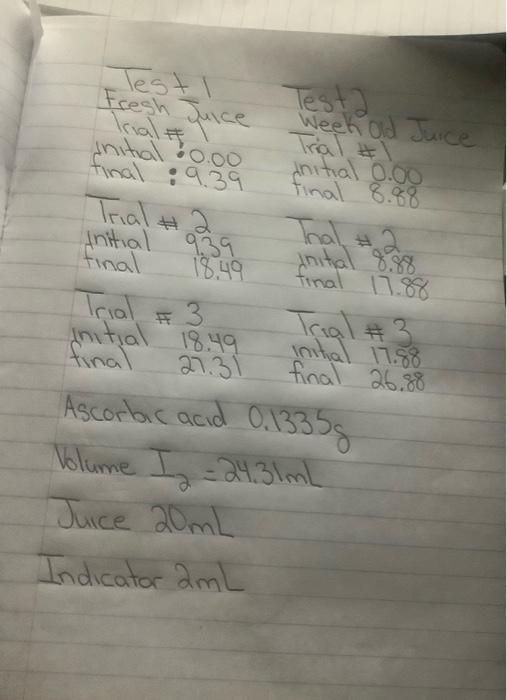 Test 1
Fresh Juice
Trial # 1
initial : 0.00
final : 9.39
Trial # 2
initial 9.39
final 18.49
Trial # 3
initial 18.49
final 27.31
Test 2
Week Old Juice
Trial #1
initial 0.00
final 8.88
Trial #2
initial 8.88
final 17.88
Trial # 3
initial 17.88
final 26.88
Ascorbic acid 0.1335g
Volume I₂ = 24.31mL
Juice 20mL
Indicator 2mL